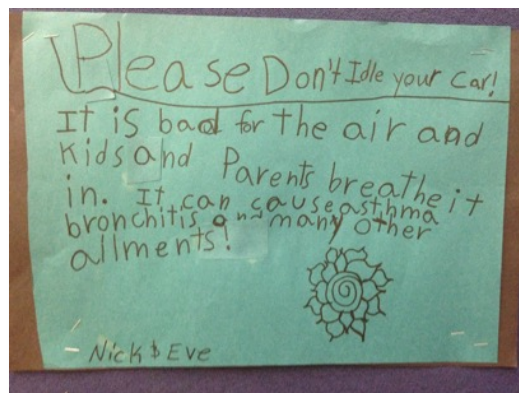 Please Don't Idle your Car!
It is bad for the air and
Kids and Parents breathe it
in. It can cause asthma
bronchitis any many other
allments!
Nick & Eve